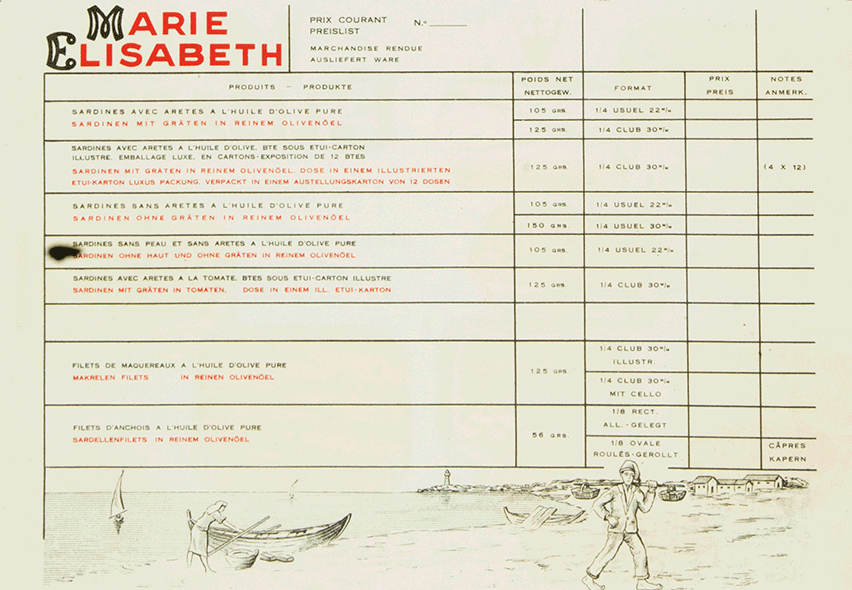 MARIE
ELISABETH
PRIX COURANT N.º
PREISLIST
MARCHANDISE RENDUE
AUSLIEFERT WARE
PRODUITS - PRODUKTE
POIDS NET
NETTOGEW.
FORMAT
PRIX
PREIS
NOTES
ANMERK.
SARDINES AVEC ARETES A L'HUILE D'OLIVE PURE
SARDINEN MIT GRÄTEN IN REINEM OLIVENÖEL
105 GRS. 1/4 USUEL 22 m/m
125 GRS. 1/4 CLUB 30 m/m
SARDINES AVEC ARETES A L'HUILE D'OLIVE, BTE SOUS ETUI-CARTON
ILLUSTRE, EMBALLAGE LUXE, EN CARTONS-EXPOSITION DE 12 BTES
SARDINEN MIT GRÄTEN IN REINEM OLIVENÖEL, DOSE IN EINEM ILLUSTRIERTEN
ETUI-KARTON LUXUS PACKUNG, VERPACKT IN EINEM AUSTELLUNGSKARTON VON 12 DOSEN
125 GRS. 1/4 CLUB 30 m/m (4 X 12)
SARDINES SANS ARETES A L'HUILE D'OLIVE PURE
SARDINEN OHNE GRÄTEN IN REINEM OLIVENÖEL
105 GRS. 1/4 USUEL 22 m/m
150 GRS. 1/4 USUEL 30 m/m
SARDINES SANS PEAU ET SANS ARETES A L'HUILE D'OLIVE PURE
SARDINEN OHNE HAUT UND OHNE GRÄTEN IN REINEM OLIVENÖEL
105 GRS. 1/4 USUEL 22 m/m
SARDINES AVEC ARETES A LA TOMATE, BTES SOUS ETUI-CARTON ILLUSTRE
SARDINEN MIT GRÄTEN IN TOMATEN, DOSE IN EINEM ILL. ETUI-KARTON
125 GRS. 1/4 CLUB 30 m/m
FILETS DE MAQUEREAUX A L'HUILE D'OLIVE PURE
MAKRELEN FILETS IN REINEN OLIVENÖEL
125 GRS.
1/4 CLUB 30 m/m
ILLUSTR.
1/4 CLUB 30 m/m
MIT CELLO
FILETS D'ANCHOIS A L'HUILE D'OLIVE PURE
SARDELLENFILETS IN REINEM OLIVENÖEL
56 GRS.
1/8 RECT.
ALL.-GELEGT
1/8 OVALE
ROULÊS-GEROLLT
CÂPRES
KAPERN